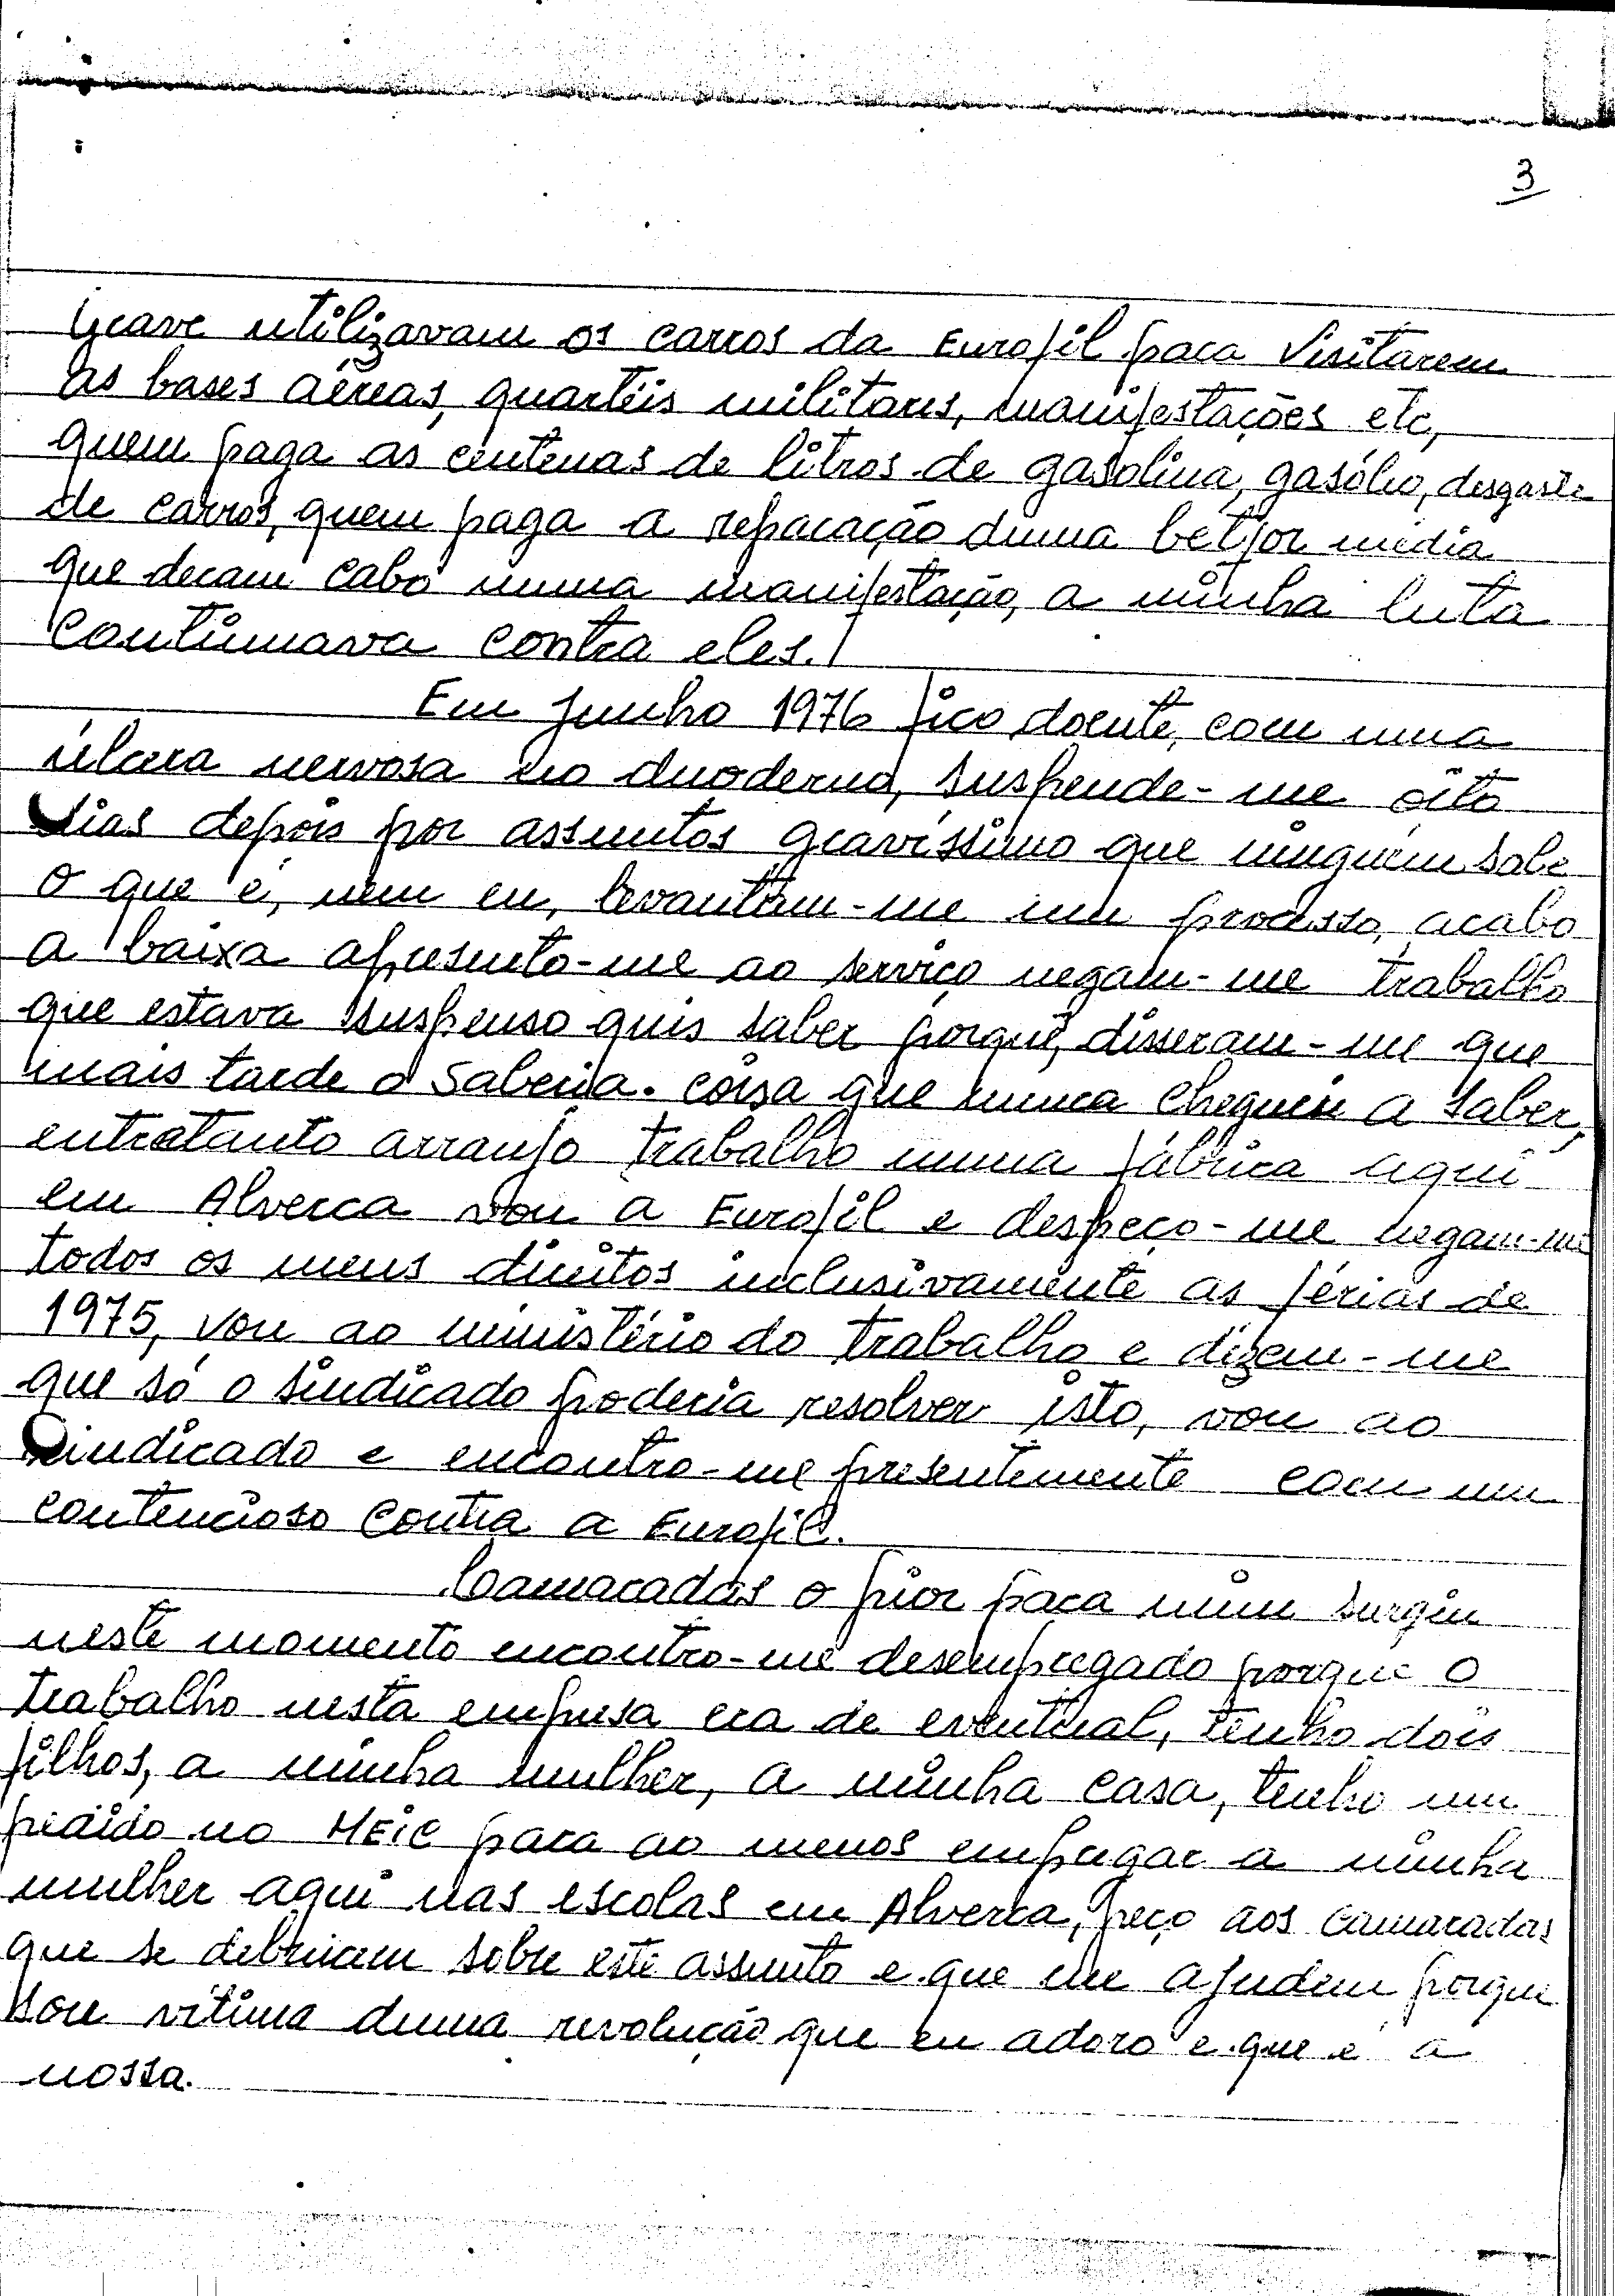 3
Grave utilizavam os carros da Eurofil para Visitarem
as bases aéreas, quartéis militares, manifestações etc,
quem paga as centenas de litros de gasolina, gasóleo, desgaste
de carros, quem paga a reparação duma betfor média
que deram cabo numa manifestação, a minha luta
continuava contra eles.
Em Junho 1976 fico doente, com uma
úlcera nervosa no duoderno, suspende-me oito
dias depois por assuntos gravíssimo que ninguém sabe
o que é, nem eu, levantam-me um processo, acabo
a baixa apresento-me ao serviço negam-me trabalho
que estava suspenso quis saber porquê, disseram-me que
mais tarde o saberia. coisa que nunca cheguei a saber,
entretanto arranjo trabalho numa fábrica aqui
em Alverca vou a Eurofil e despeço-me negam-me
todos os meus direitos inclusivamente as férias de
1975, vou ao ministério do trabalho e dizem-me
que só o sindicado poderia resolver isto, vou ao
Sindicado e encontro-me presentemente com um
contencioso contra a Eurofil.
Camaradas o pior para mim surgiu
neste momento encontro-me desempregado porque o
trabalho nesta empresa era de eventual, tenho dois
filhos, a minha mulher, a minha casa, tenho um
pedido no MEIC para ao menos empregar a minha
mulher aqui nas escolas em Alverca, peço aos camaradas
que se debrucem sobre este assunto e que me ajudem porque
sou vítima duma revolução que eu adoro e que é a
nossa.